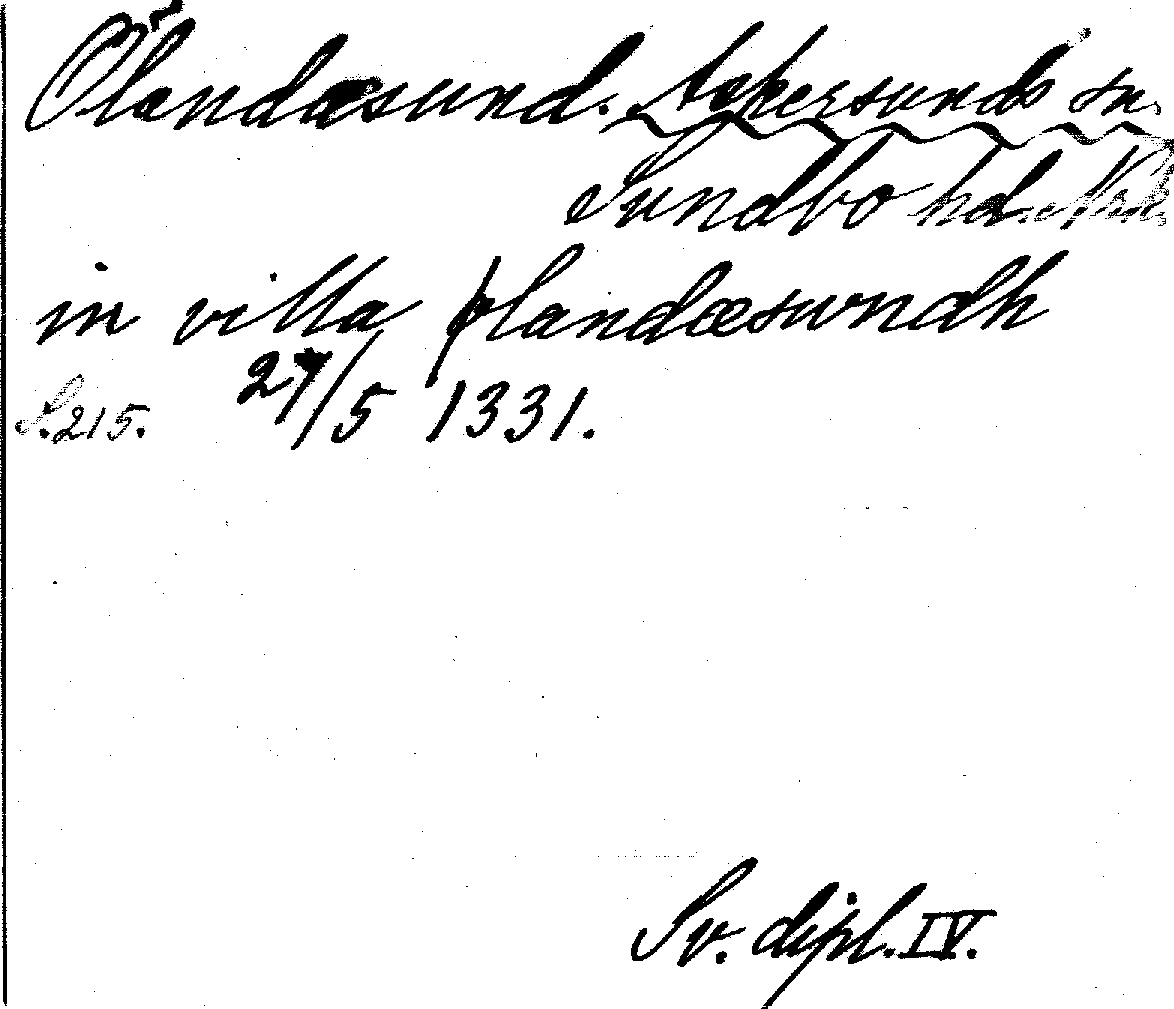 Ölandæsund. Askersunds sn.
Sundbo hd. Nrk.
in villa ølandæsundh
S. 215. 27/5 1331.
Sv. dipl. IV.